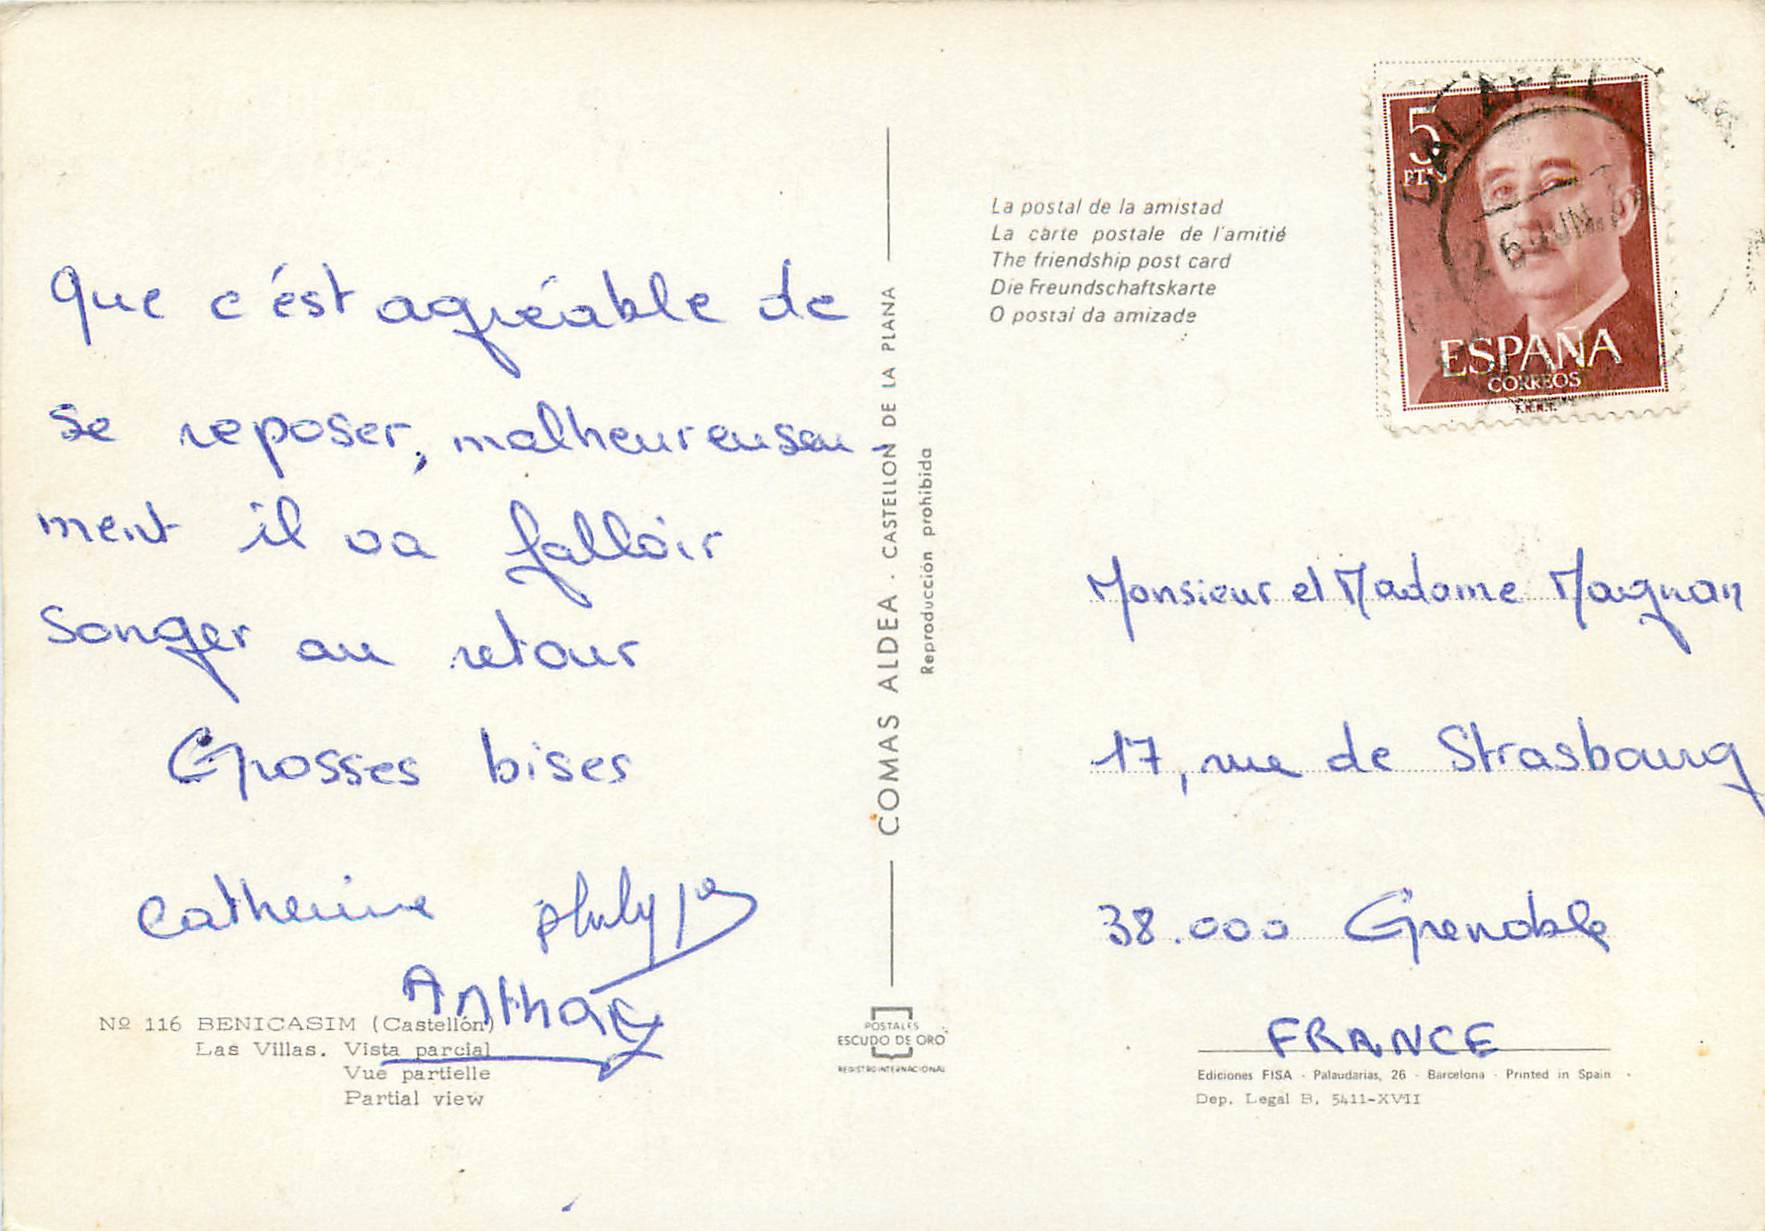 Que c'est agréable de
se reposer, malheureuseu-
ment il va falloir
songer au retour
Grosses bises
Catherine
Anthony
Nº 116 BENICASIM (Castellón)
Las Villas. Vista parcial
Vue partielle
Partial view
COMAS ALDEA · CASTELLON DE LA PLANA
Reproducción prohibida
POSTALES
ESCUDO DE ORO
REGISTRO INTERNACIONAL
La postal de la amistad
La carte postale de l'amitié
The friendship post card
Die Freundschaftskarte
O postal da amizade
5
PTAS
26 JUN.
ESPAÑA
CORREOS
F.N.M.T.
Monsieur et Madame Magnan
17, rue de Strasbourg
38.000 Grenoble
FRANCE
Ediciones FISA - Palaudarias, 26 - Barcelona - Printed in Spain
Dep. Legal B. 5411-XVII